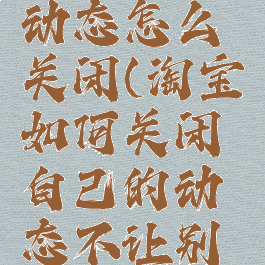 动态怎么
关闭(淘宝
如何关闭
自己的动
态不让别